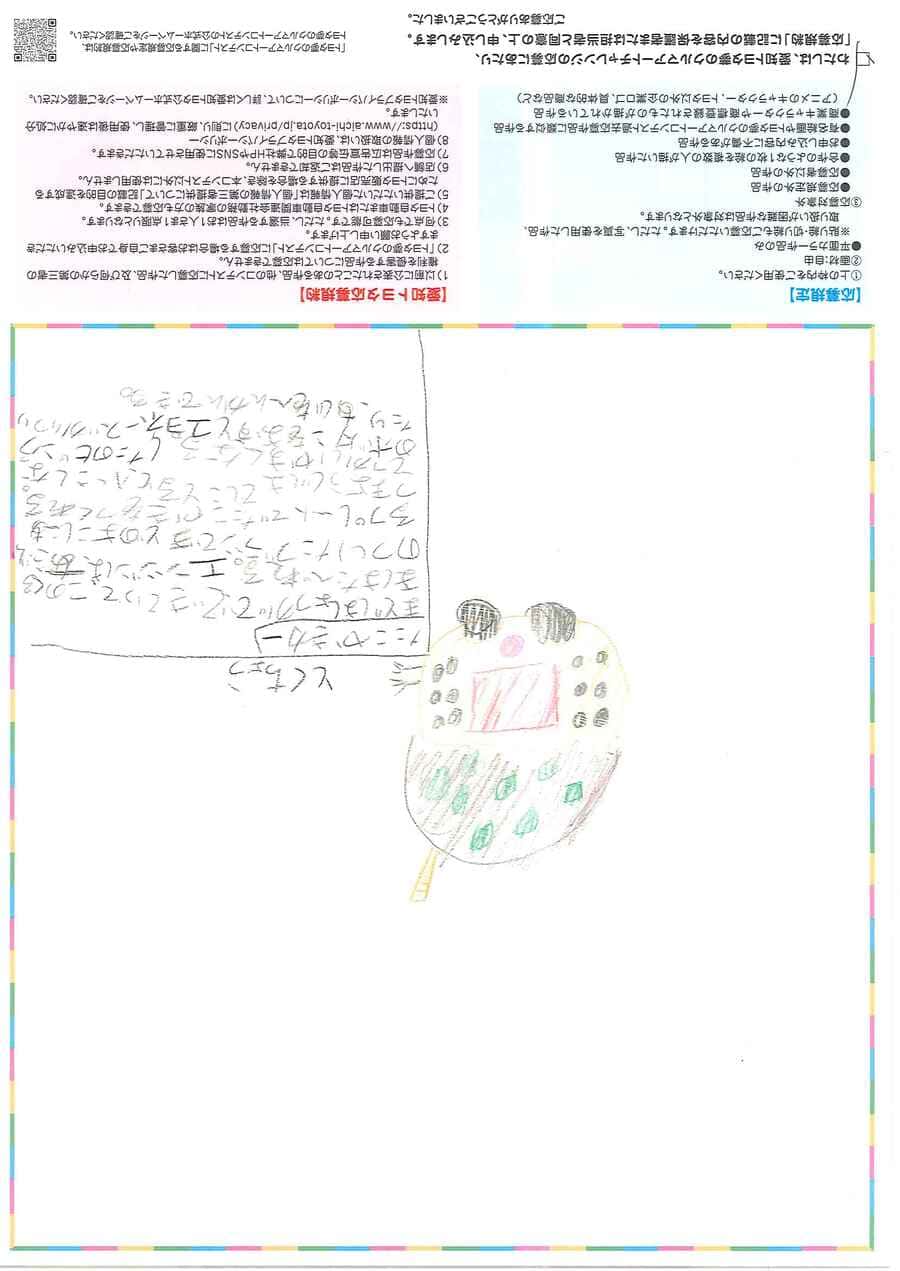 とくちょう
たこやきカー
まどはしょうがでできていてこのくる
まはたべれる。エンジンは、
のついた
プレートでたこやきをつくれる。
つまようじ
したのピンク
のボタンをおすと
たり、
へんかんできる。
【応募規定】
①上の枠内をご使用ください。
②画材:自由
●平面カラー作品のみ
※貼り絵・切り絵もご応募いただけます。ただし、写真を使用した作品、
取り扱いが困難な作品は対象外となります。
③応募対象外
●応募規定外の作品
●応募者以外の作品
●合作のような1枚の絵を複数の人が描いた作品
●お申し込み内容に不備がある作品
●有名絵画やトヨタ夢のクルマアートコンテスト過去応募作品に類似する作品
●商業キャラクターや商標登録されたものが描かれている作品
(アニメのキャラクター、トヨタ以外の企業ロゴ、具体的な商品など)
【愛知トヨタ応募規約】
1)以前に公表されたことのある作品、他のコンテストに応募した作品、及び何らかの第三者の
権利を侵害する作品については応募できません。
2)「トヨタ夢のクルマアートコンテスト」に応募する場合はお客さまご自身でお申込みいただき
ますようお願い申し上げます。
3)何点でも応募可能です。ただし、当選する作品は1人さま1点限りとなります。
4)トヨタ自動車またはトヨタ自動車関連会社勤務の家族の方も応募できます。
5)ご提供いただいた個人情報は「個人情報の第三者提供について」記載の目的を達成する
ためにトヨタ販売店に提供する場合を除き、本コンテスト以外には使用しません。
6)店舗へ提出した作品はご返却できません。
7)応募作品は広告宣伝等の目的で弊社HPやSNSに使用させていただきます。
8)個人情報の取扱いは、愛知トヨタプライバシーポリシー
(https://www.aichi-toyota.jp/privacy)に則り、厳重に管理し、使用後は速やかに処分
いたします。
※愛知トヨタプライバシーポリシーについて、詳しくは愛知トヨタ公式ホームページをご確認ください。
わたしは、愛知トヨタ夢のクルマアートチャレンジの応募にあたり、
「応募規約」に記載の内容を保護者または担当者と同意の上、申し込みします。
ご応募ありがとうございました。
「トヨタ夢のクルマアートコンテスト」に関する応募規定や応募規約は、
トヨタ夢のクルマアートコンテストの公式ホームページをご確認ください。